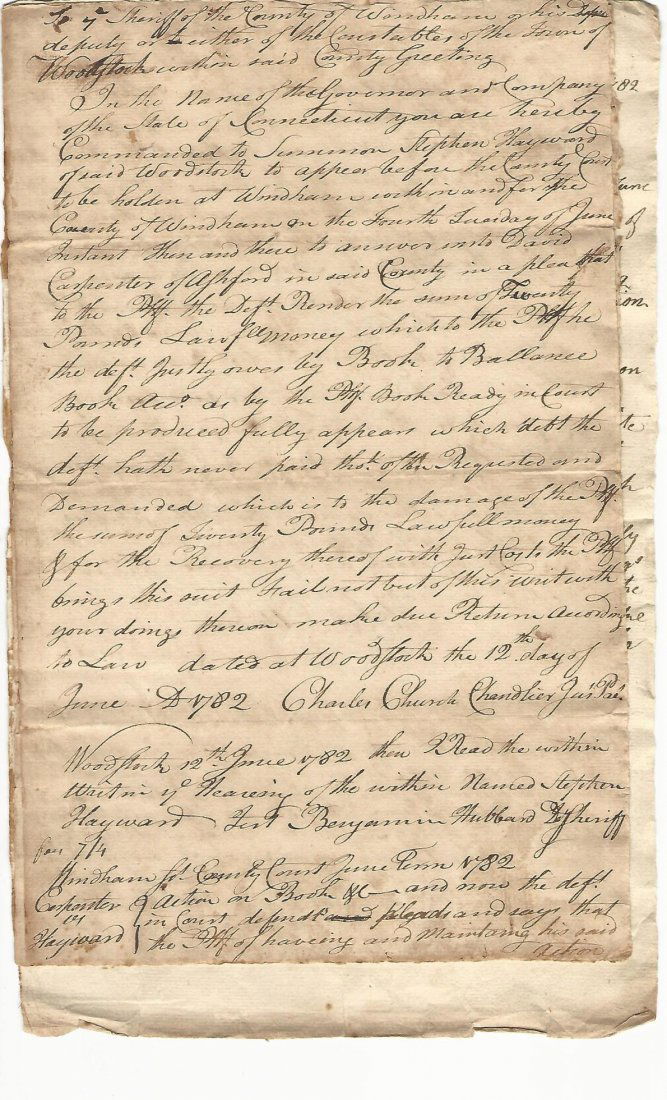 To ye Sheriff of the County of Windham or his
deputy or to either of the Constables of the Town of
Woodstock within said County Greeting
In the Name of the Governor and Company
of the State of Connecticut you are hereby
Commanded to Summon Stephen Hayward
of said Woodstock to appear before the County Court
to be holden at Windham within and for the
County of Windham on the Fourth Tuesday of June
Instant then and there to answer unto David
Carpenter of Ashford in said County in a plea that
to the Plff. the Deft. Render the sum of Twenty
Pounds Lawfull money which to the Plff he
the deft. Justly owes by Book to Ballance
Book Acco. as by the Plff Book Ready in Court
to be produced fully appears which debt the
deft. hath never paid tho't often Requested and
Demanded which is to the damage of the Plff
the sum of Twenty Pounds Lawfull money
& for the Recovery thereof with Just Costs the Plff
brings this suit Fail not but of this writ with
your doings thereon make due Return According
to Law dated at Woodstock the 12th day of
June AD 1782 Charles Church Chandler Jus Pac
Woodstock 12th June 1782 then I Read the within
Writ in ye Heareing of the within Named Stephen
Hayward Test Benjamin Hubbard Dp Sheriff
fees 7/4
Windham Ss. County Court June Term 1782
Carpenter Action on Book &c and now the deft.
vs in Court defends pleads and says that
Hayward the Plff of haveing and Maintaing his said
Action
82
June
of
on